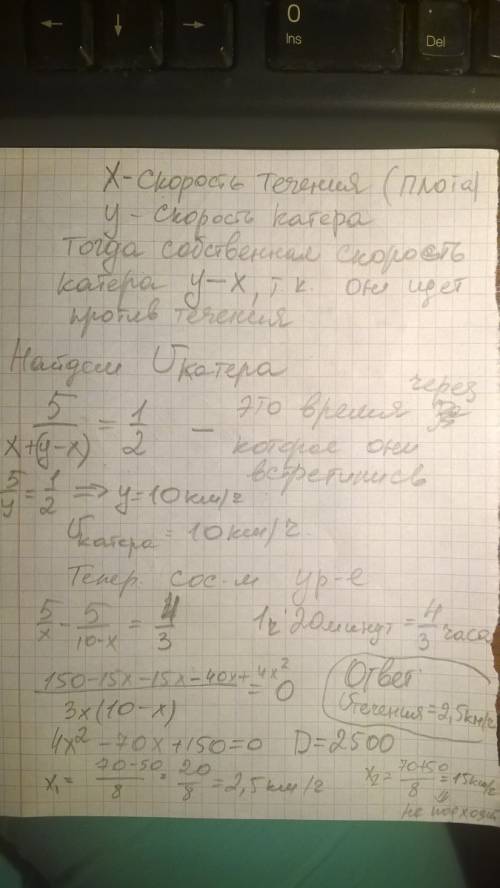 ← ↓ → 0 Ins Del
X - скорость течения (плота)
y - скорость катера
Тогда собственная скорость
катера y-x, т.к. они идет
против течения
Найдем υкатера
5/(x+(y-x)) = 1/2 — это время через
которое они
встретились
5/y = 1/2 ⇒ y=10км/ч
υкатера = 10км/ч.
Тепер. сос-м ур-е
5/x - 5/(10-x) = 4/3 1ч. 20минут = 4/3 часа
(150-15x-15x-40x+4x²)/(3x(10-x)) = 0
Ответ
υтечения=2,5км/ч
4x²-70x+150=0 D=2500
x₁ = (70-50)/8 = 20/8 = 2,5км/ч x₂ = (70+50)/8 = 15км/ч
⇓
не подходит